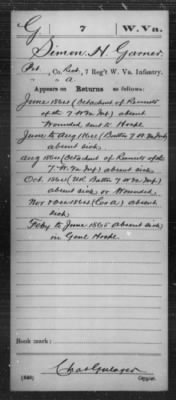 G | 7 | W. Va.
Simon H. Garner
Pvt, Co. Rect, 7 Reg't W. Va. Infantry.
" " A.
Appears on Returns as follows:
June 1864 (Detachment of Recruits
of the 7 W Va Inf) absent
Wounded, sent to Hospl
June to Aug 1864 (Battn 7 W Va Inf)
absent sick
Aug 1864 (Detachment of Recruits of the
7. W. Va Inf) absent sick
Oct. 1864 (Battn 7 W Va Inf)
absent sick or Wounded.
Nov & Dec 1864 (Co A) absent
sick
Feby to June 1865 absent sick
in Genl Hospl
Book mark:
(546)
Copyist.